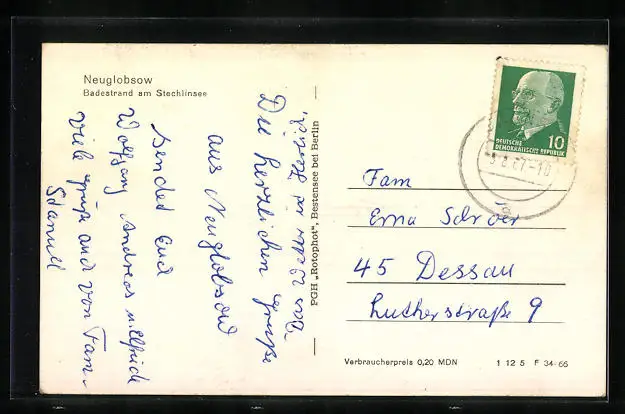 Neuglobsow
Badestrand am Stechlinsee
Die herzlichen Grüße
aus Neuglobsow
sendet Eud
Wolfgang Andreas u. Elfride
Viele grüße auch von Fam.
PGH „Rotophot“, Bestensee bei Berlin
DEUTSCHE
DEMOKRATISCHE REPUBLIK
10
Fam
Erna
45 Dessau
Lutherstraße 9
Verbraucherpreis 0,20 MDN
1 12 5 F 34-66